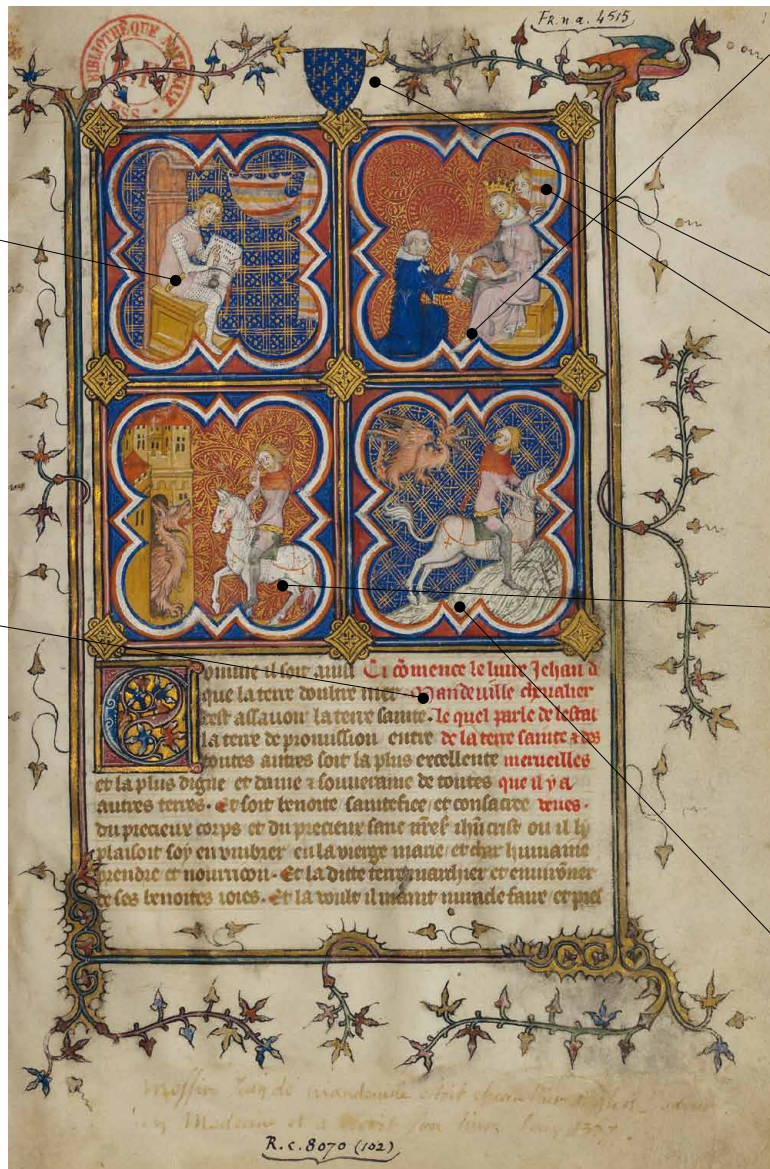 Fr. n. a. 4515
BIBLIOTHÈQUE NATIONALE
MSS
omme il soit ainsi Ci cōmence le liure Jehan d
que la terre doultre mer Mandeuille cheualier
cest assauoir la terre sainte. le quel parle de lestat
la terre de promission entre de la terre sainte & des
toutes autres soit la plus excellente merueilles
et la plus digne et dame & souueraine de toutes que il y a
autres terres. Et soit benoite saintefiee et consacree veues.
du precieux corps et du precieux sanc nr̄e ih̄u crist ou il li
plaisoit soy en vmbrer en la vierge marie et char humaine
prendre et nourricon. Et la dite terre marchier et enuirōner
de ses benoites Et la voult il maint miracle faire et
Messire de mandeuille
R. c. 8070 (102)